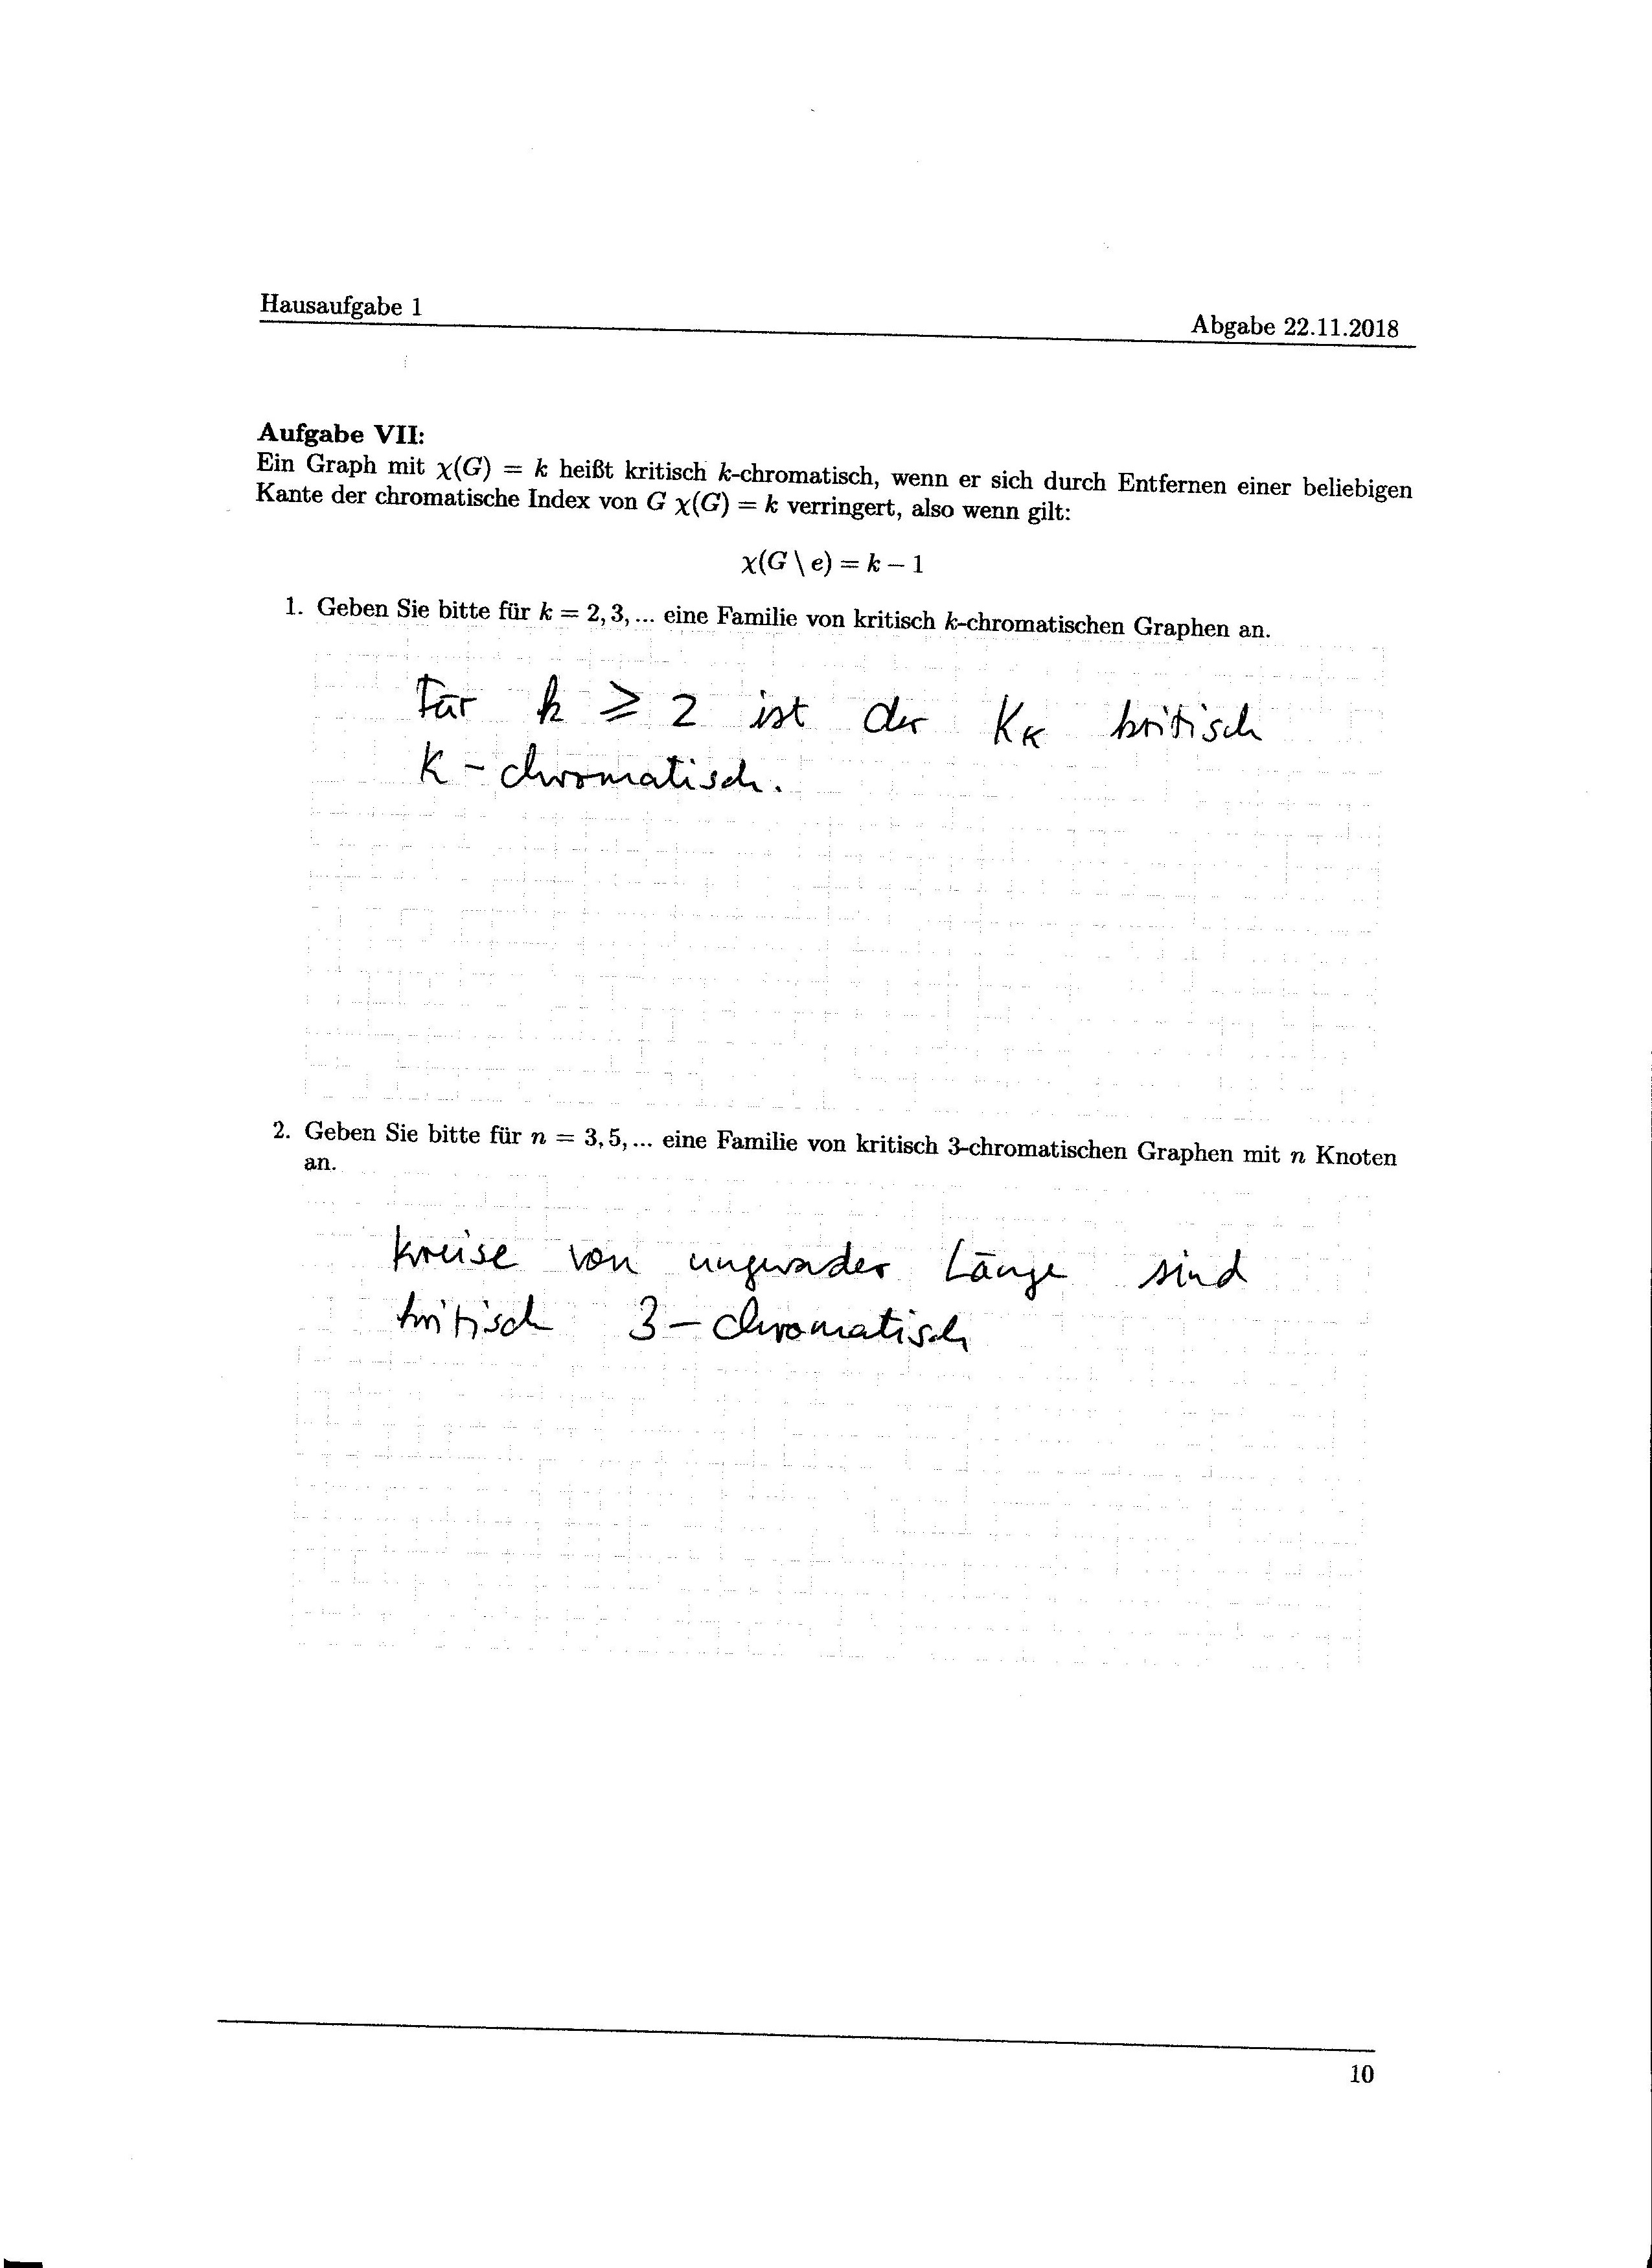 Hausaufgabe 1
Abgabe 22.11.2018
Aufgabe VII:
Ein Graph mit χ(G) = k heißt kritisch k-chromatisch, wenn er sich durch Entfernen einer beliebigen
Kante der chromatische Index von G χ(G) = k verringert, also wenn gilt:
χ(G \ e) = k − 1
1. Geben Sie bitte für k = 2, 3, ... eine Familie von kritisch k-chromatischen Graphen an.
Für k ⩾ 2 ist der K_K kritisch
K - chromatisch.
2. Geben Sie bitte für n = 3, 5, ... eine Familie von kritisch 3-chromatischen Graphen mit n Knoten
an.
Kreise von ungerader Länge sind
kritisch 3 - chromatisch
10